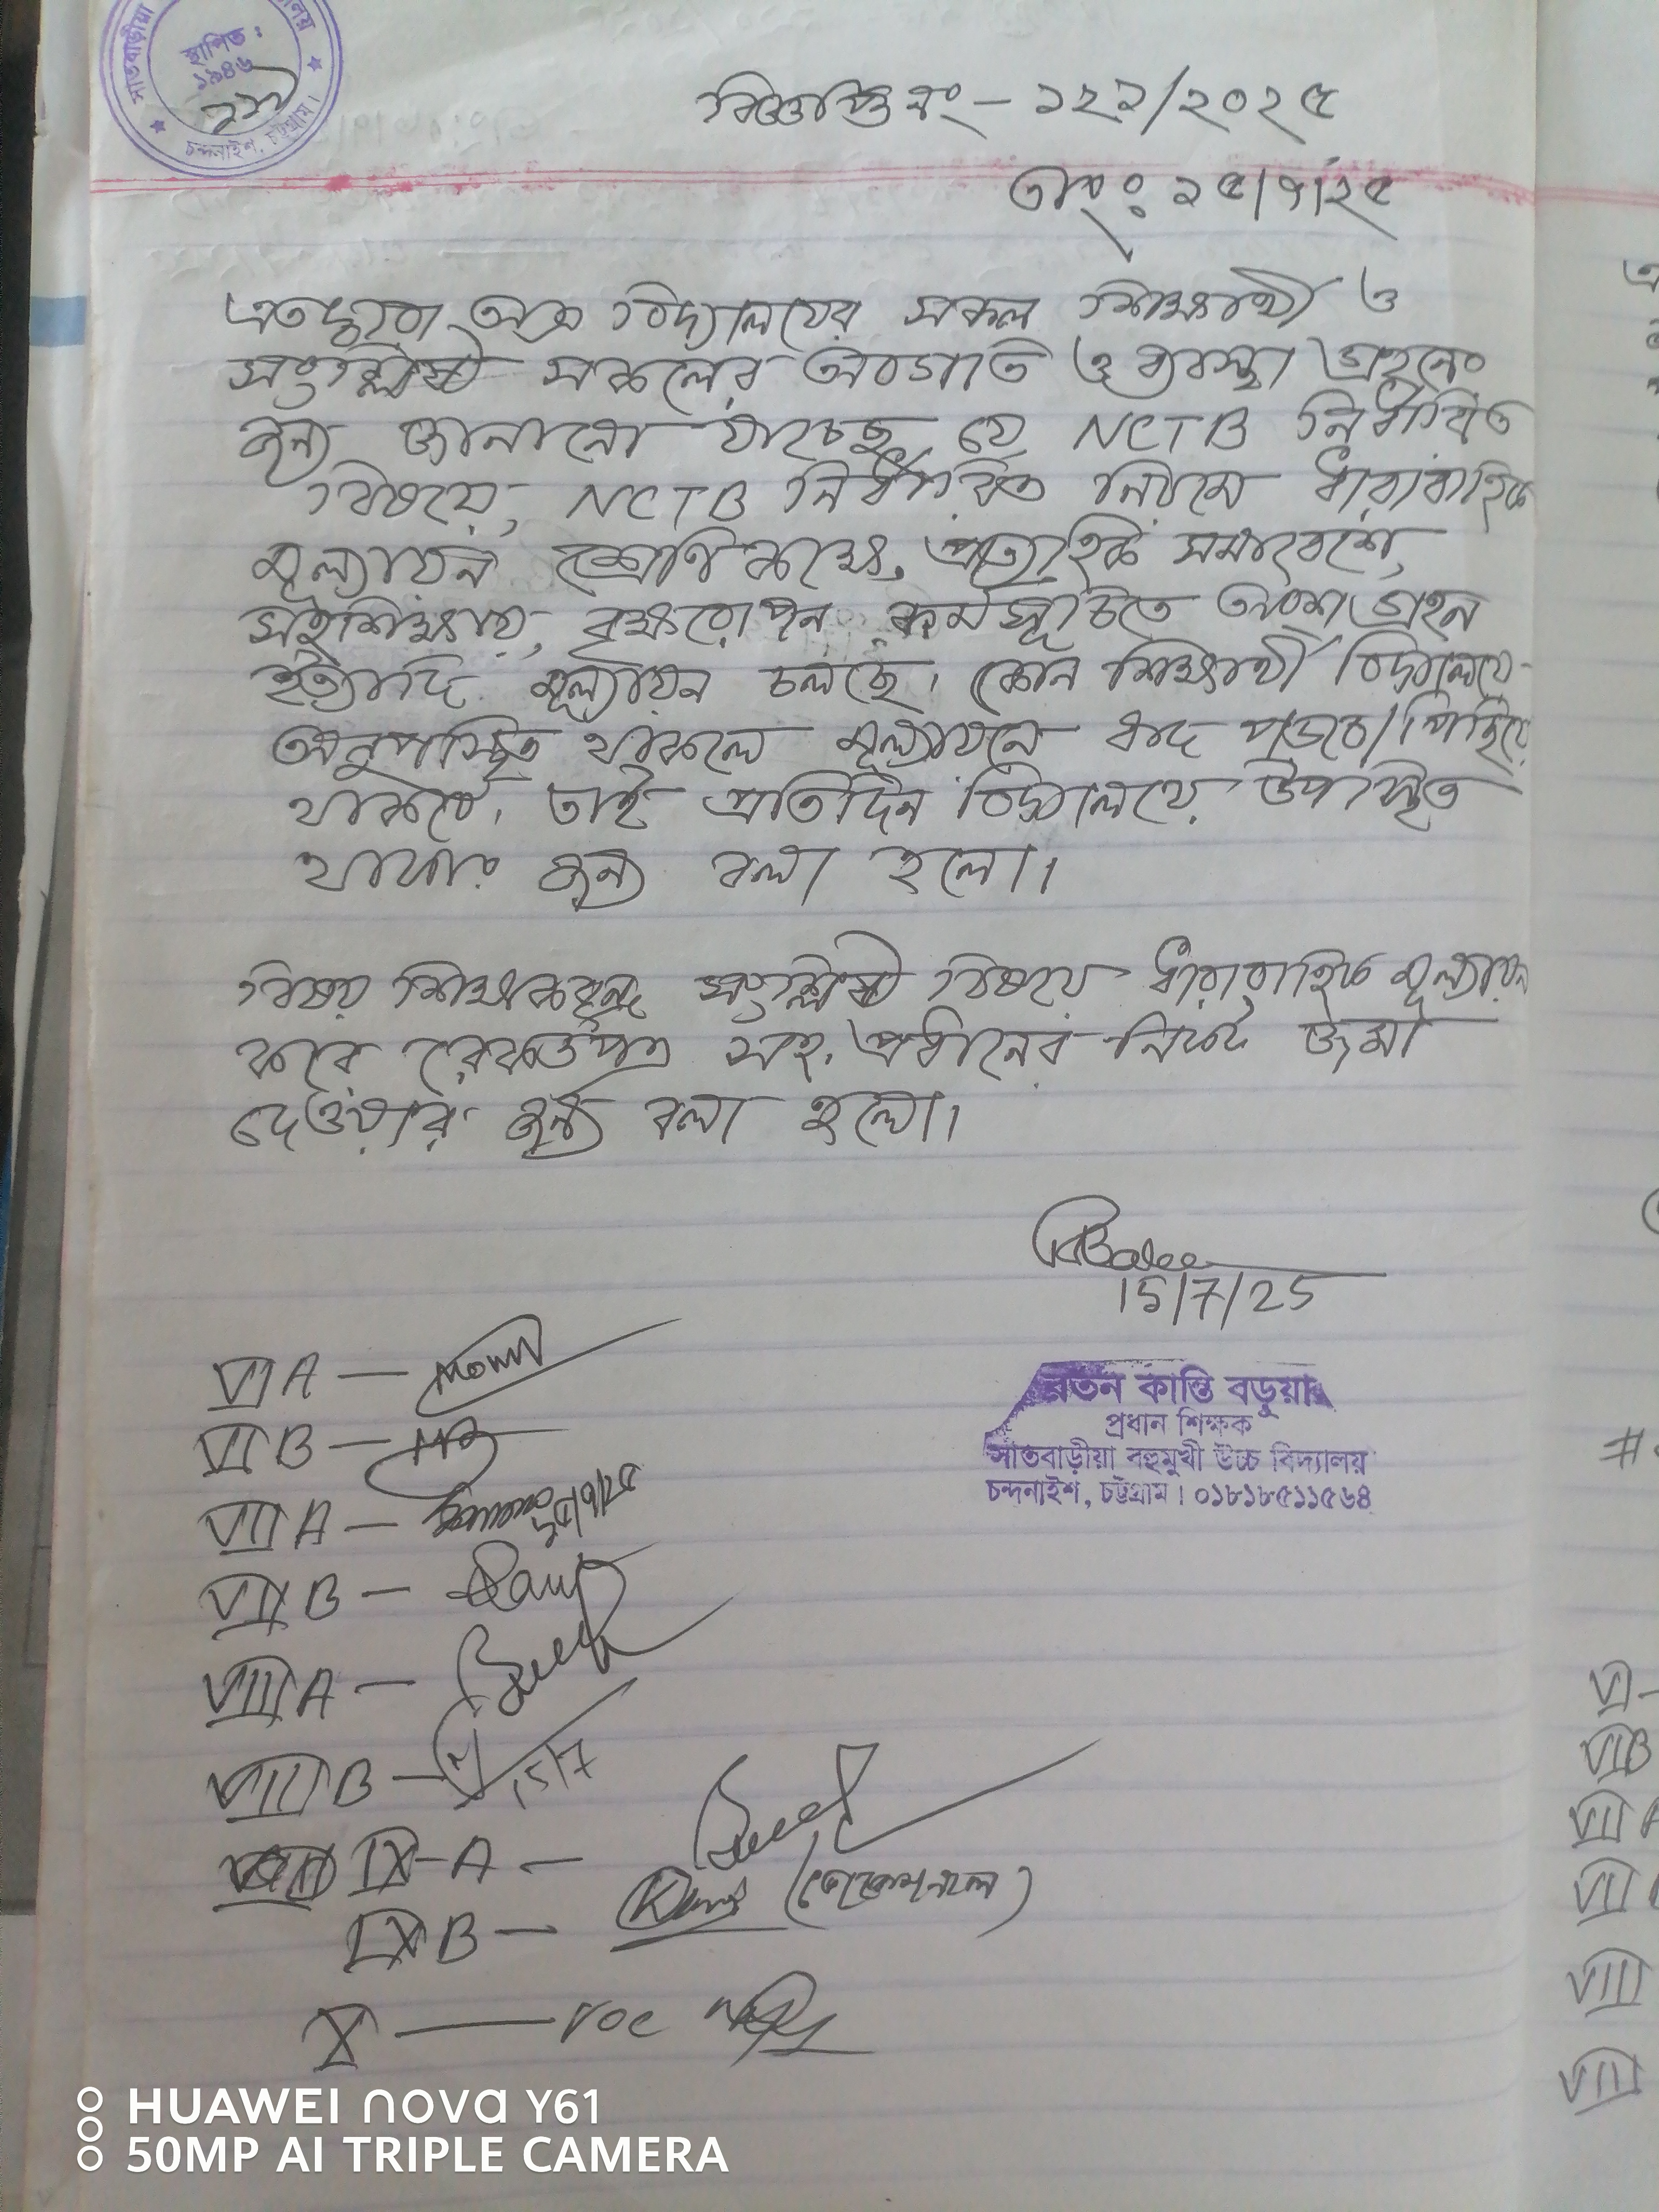 স্থাপিত :
১৯৪৬
চন্দনাইশ, চট্টগ্রাম।
বিজ্ঞপ্তি নং - ১২২/২০২৫
তাং: ১৫/৭/২৫
এতদ্বারা অত্র বিদ্যালয়ের সকল শিক্ষার্থী ও
সংশ্লিষ্ট সকলের অবগতি ও ব্যবস্থা গ্রহনের
জন্য জানানো যাচ্ছে যে NCTB নির্ধারিত
বিষয়ে, NCTB নির্ধারিত নিয়মে ধারাবাহিক
মূল্যায়ন শ্রেণি কক্ষে, প্রাত্যহিক সমাবেশে,
সহশিক্ষায়, বৃক্ষরোপন কর্মসূচিতে অংশগ্রহন
ইত্যাদি মূল্যায়ন চলছে। কোন শিক্ষার্থী বিদ্যালয়ে
অনুপস্থিত থাকলে মূল্যায়নে বাদ পড়বে/পিছিয়ে
থাকবে। তাই প্রতিদিন বিদ্যালয়ে উপস্থিত
থাকার জন্য বলা হলো।
বিষয় শিক্ষকবৃন্দ সংশ্লিষ্ট বিষয়ে ধারাবাহিক মূল্যায়ন
করে রেকর্ডপত্র সহ প্রধানের নিকট জমা
দেওয়ার জন্য বলা হলো।
15/7/25
রতন কান্তি বড়ুয়া
প্রধান শিক্ষক
সাতবাড়ীয়া বহুমুখী উচ্চ বিদ্যালয়
চন্দনাইশ, চট্টগ্রাম। ০১৮১৮৫১১৫৬৪
VI A —
VI B —
VII A —
VII B —
VIII A —
VIII B — 15/7
IX - A —
(ভোকেশনাল)
IX B —
X — voc
HUAWEI nova Y61
50MP AI TRIPLE CAMERA